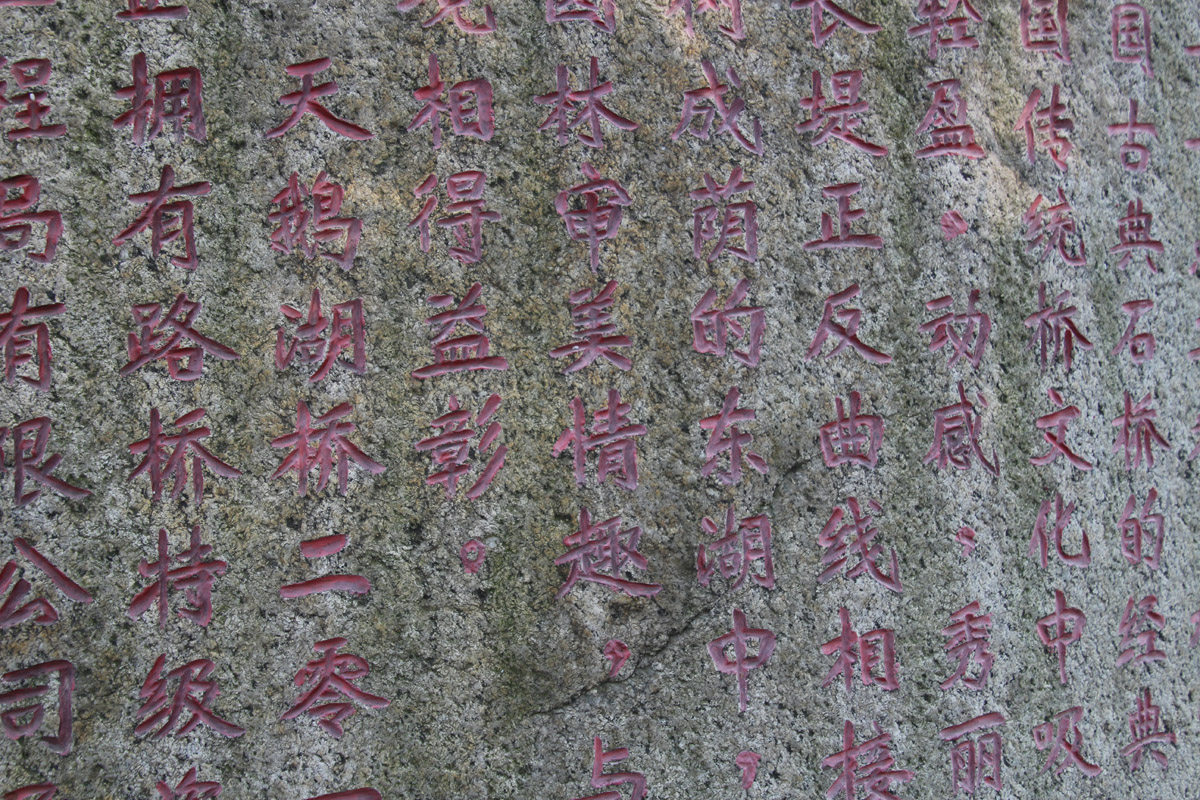 国古典石桥的经典
国传统桥文化中吸
轻盈。动感，秀丽
长堤正反曲线相接
树成荫的东湖中，
园林审美情趣，与
相得益彰。
天鹅湖桥二零
拥有路桥特级
程局有限公司